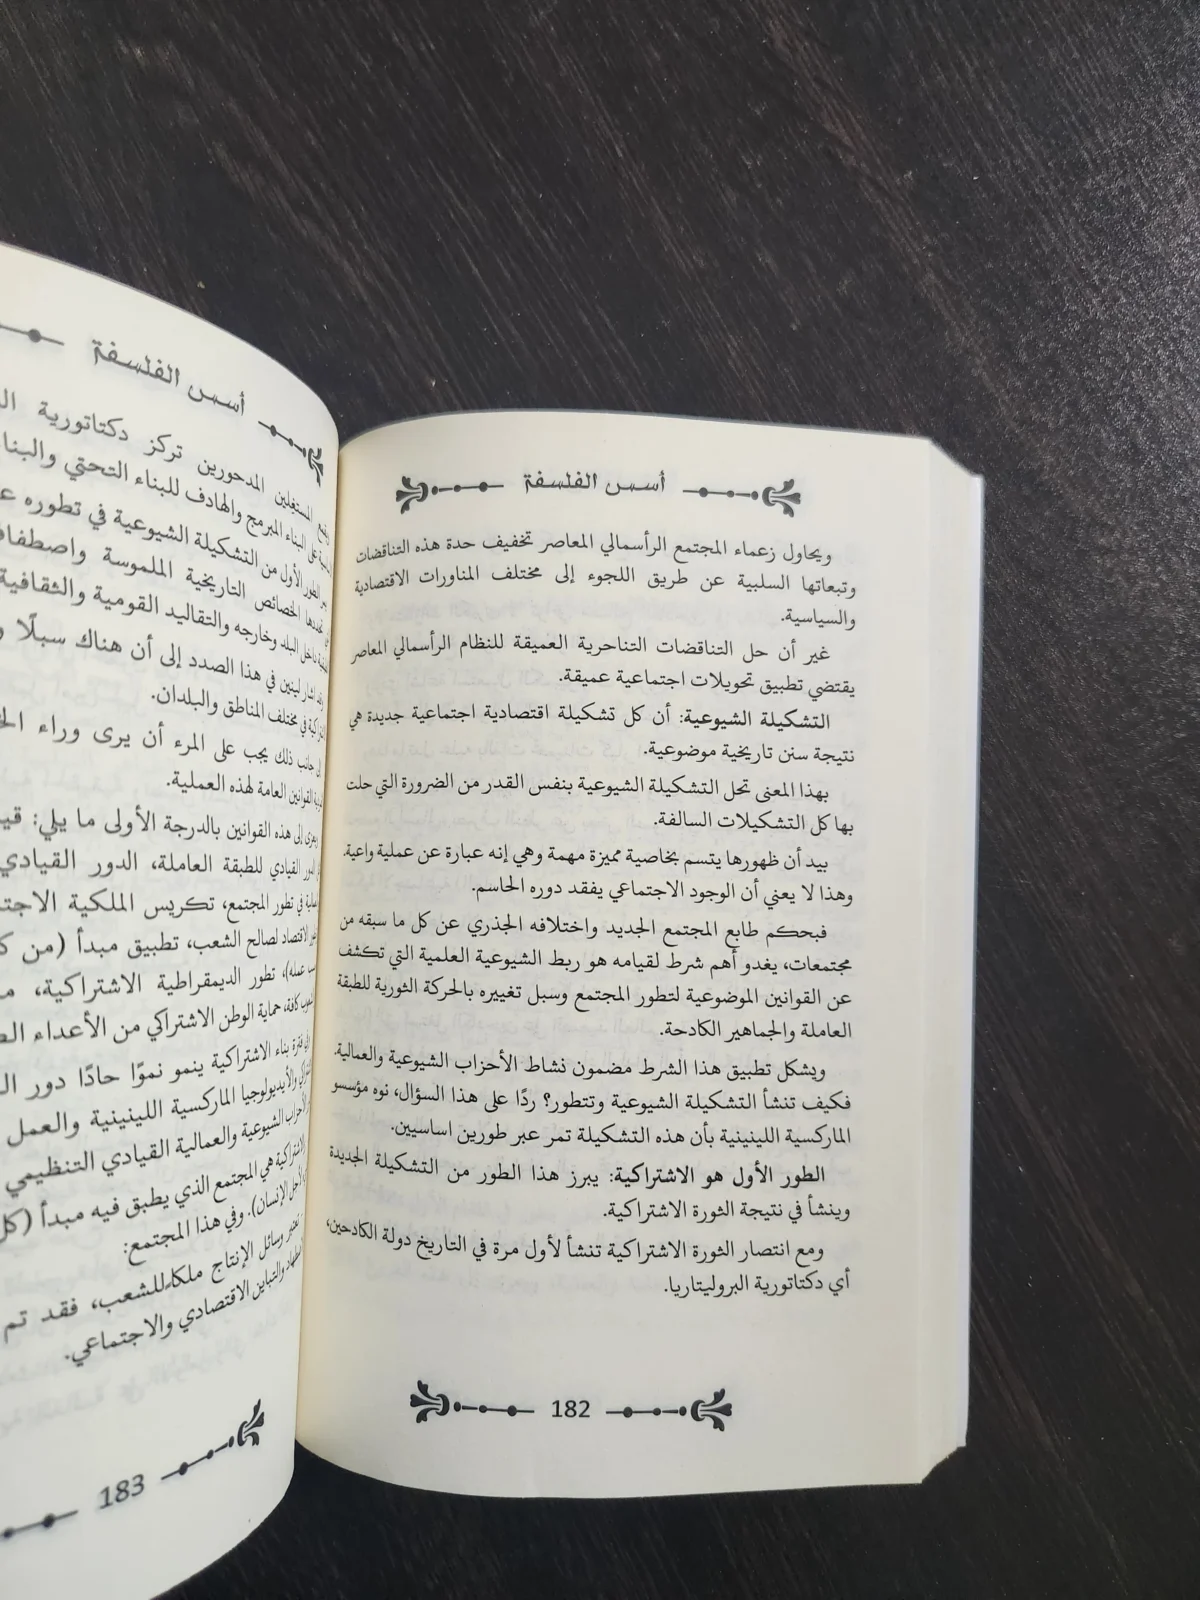 أسس الفلسفة
ويحاول زعماء المجتمع الرأسمالي المعاصر تخفيف حدة هذه التناقضات
وتبعاتها السلبية عن طريق اللجوء إلى مختلف المناورات الاقتصادية
والسياسية.
غير أن حل التناقضات التناحرية العميقة للنظام الرأسمالي المعاصر
يقتضي تطبيق تحويلات اجتماعية عميقة.
التشكيلة الشيوعية: أن كل تشكيلة اقتصادية اجتماعية جديدة هي
نتيجة سنن تاريخية موضوعية.
بهذا المعنى تحل التشكيلة الشيوعية بنفس القدر من الضرورة التي حلت
بها كل التشكيلات السالفة.
بيد أن ظهورها يتسم بخاصية مميزة مهمة وهي إنه عبارة عن عملية واعية.
وهذا لا يعني أن الوجود الاجتماعي يفقد دوره الحاسم.
فبحكم طابع المجتمع الجديد واختلافه الجذري عن كل ما سبقه من
مجتمعات، يغدو أهم شرط لقيامه هو ربط الشيوعية العلمية التي تكشف
عن القوانين الموضوعية لتطور المجتمع وسبل تغييره بالحركة الثورية للطبقة
العاملة والجماهير الكادحة.
ويشكل تطبيق هذا الشرط مضمون نشاط الأحزاب الشيوعية والعمالية.
فكيف تنشأ التشكيلة الشيوعية وتتطور؟ ردًا على هذا السؤال، نوه مؤسسو
الماركسية اللينينية بأن هذه التشكيلة تمر عبر طورين اساسيين.
الطور الأول هو الاشتراكية: يبرز هذا الطور من التشكيلة الجديدة
وينشأ في نتيجة الثورة الاشتراكية.
ومع انتصار الثورة الاشتراكية تنشأ لأول مرة في التاريخ دولة الكادحين،
أي دكتاتورية البروليتاريا.
182
أسس الفلسفة
المستغِلين المدحورين تركز دكتاتورية
على البناء المبرمج والهادف للبناء التحتي
الطور الأول من التشكيلة الشيوعية في تطوره
الخصائص التاريخية الملموسة
داخل البلد وخارجه والتقاليد القومية والثقافية
لينين في هذا الصدد إلى أن هناك سبلًا
في مختلف المناطق والبلدان.
جانب ذلك يجب على المرء أن يرى وراء
القوانين العامة لهذه العملية.
إلى هذه القوانين بالدرجة الأولى ما يلي:
القيادي للطبقة العاملة، الدور القيادي
في تطور المجتمع، تكريس الملكية
الاقتصاد لصالح الشعب، تطبيق مبدأ (من
عمله)، تطور الديمقراطية الاشتراكية،
كافة، حماية الوطن الاشتراكي من الأعداء
فترة بناء الاشتراكية ينمو نموًا حادًا دور
والأيديولوجيا الماركسية اللينينية والعمل
الأحزاب الشيوعية والعمالية القيادي التنظيمي
الاشتراكية هي المجتمع الذي يطبق فيه مبدأ
الإنسان). وفي هذا المجتمع:
تعتبر وسائل الإنتاج للشعب، فقد تم
والتباين الاقتصادي والاجتماعي.
183